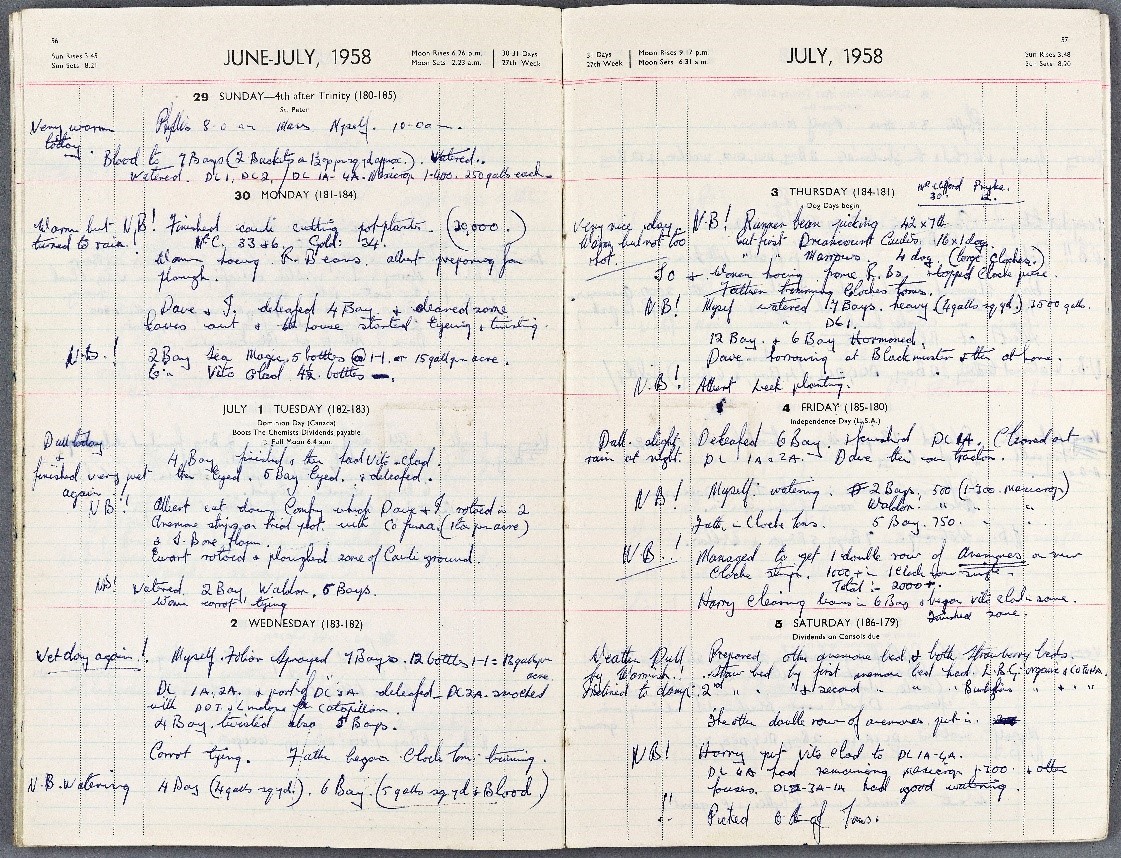 56
Sun Rises 3.45
Sun Sets 8.21
JUNE-JULY, 1958
Moon Rises 6.26 p.m.
Moon Sets 2.23 a.m.
30 31 Days
27th Week
29 SUNDAY—4th after Trinity (180-185)
St. Peter
Very warm today.
Phyllis 8-0 am Mass Myself. 10-00
Blood to 7 Bays (2 Buckets
Watered. DC1, DC2, DC 1A-4A. Maxicrop 1-400. 250 galls each
30 MONDAY (181-184)
Warm but N.B! Finished cauli cutting pot plants. (20,000.)
turned to rain.
Women hoeing R. Beans. Albert preparing for
plough.
Dave & I. deleafed 4 Bay. & cleared some
leaves out & the house started Eyeing & twisting.
N.B.! 2 Bay Sea Magic 5 bottles @ 1-1. or 15 gall per acre.
Vito Clad 4½ bottles
JULY 1 TUESDAY (182-183)
Dominion Day (Canada)
Boots The Chemists Dividends payable
Full Moon 6.4 a.m.
Dull today
4 Bay finished & then had Vito-Clad.
finished very wet then Eyed. 5 Bay Eyed. & deleafed.
again.
NB! Albert cut down Comfrey which Dave & I rotoed in 2
Anemone strips on trial plot. with Cofuna (1 ton per acre)
Ewart rotoed & ploughed some of Cauli ground.
NB! Watered 2 Bay, Waldon, 5 Bays.
Women carrot tying
2 WEDNESDAY (183-182)
Wet day again! Myself. Foliar Sprayed 7 Bays. 12 bottles 1-1 =
acre
DC 1A, 2A. & part of DC 3A deleafed. DC2A. smoked
with D.D.T. & Lindane for Caterpillars.
4 Bay. twisted also 5 Bays.
Carrot tying. Father began Cloche Tom. trimming.
N.B. Watering 4 Bay (4 galls sq. yd.). 6 Bay. (5 galls sq. yd & Blood)
57
3. Days
27th Week
Moon Rises 9.17 p.m.
Moon Sets 6.31 a.m.
JULY, 1958
Sun Rises 3.48
Sun Sets 8.20
3 THURSDAY (184-181)
Dog Days begin
Very nice day N.B! Runner bean picking 42 x 7lb
Warm but not too cut first Dreamcourt Cuedes. 16 x 1 dog.
hot. " " Marrows. 4 dog. (large Cloches.)
Women hoeing some R. Bs, & stopped Cloche
Father trimming Cloche toms.
N.B! Myself watered 17 Bays. heavy (4 galls sq. yd.) 3500 galls.
12 Bay. & 6 Bay Hormoned.
Dave harrowing at Blackmuster & then at home.
N.B! Albert Leek planting.
4 FRIDAY (185-180)
Independence Day (U.S.A.)
Dull. slight Deleafed 6 Bay & finished DC 1A. Cleared out
rain at night. DC 1A & 2A. Dave then on tractor.
N.B! Myself watering. 2 Bays, 500 (1-300 maxicrop)
Waldon. " "
Father - Cloche toms. 5 Bay. 750. "
N.B.! Managed to get 1 double row of anemones on new
Cloche strip. 1000+ in 1 Cloche row single
Total :- 2000+.
Harry Clearing leaves in 6 Bay & began vito clad some.
5 SATURDAY (186-179)
Dividends on Consols due
Weather Dull Prepared other anemone bed, & both Strawberry beds.
by Warmish! straw bed by first anemone bed had L.B.G. organic & COFUNA.
Inclined to damp. 2nd " " & second " " " " + " "
The other double row of anemones put in.
N.B! Harry put vito clad to DC 1A-4A.
DC 4A had remaining maxicrop 1-200. & other
houses. DC2-3A-1A had good watering.
!! Picked 6 of Toms.